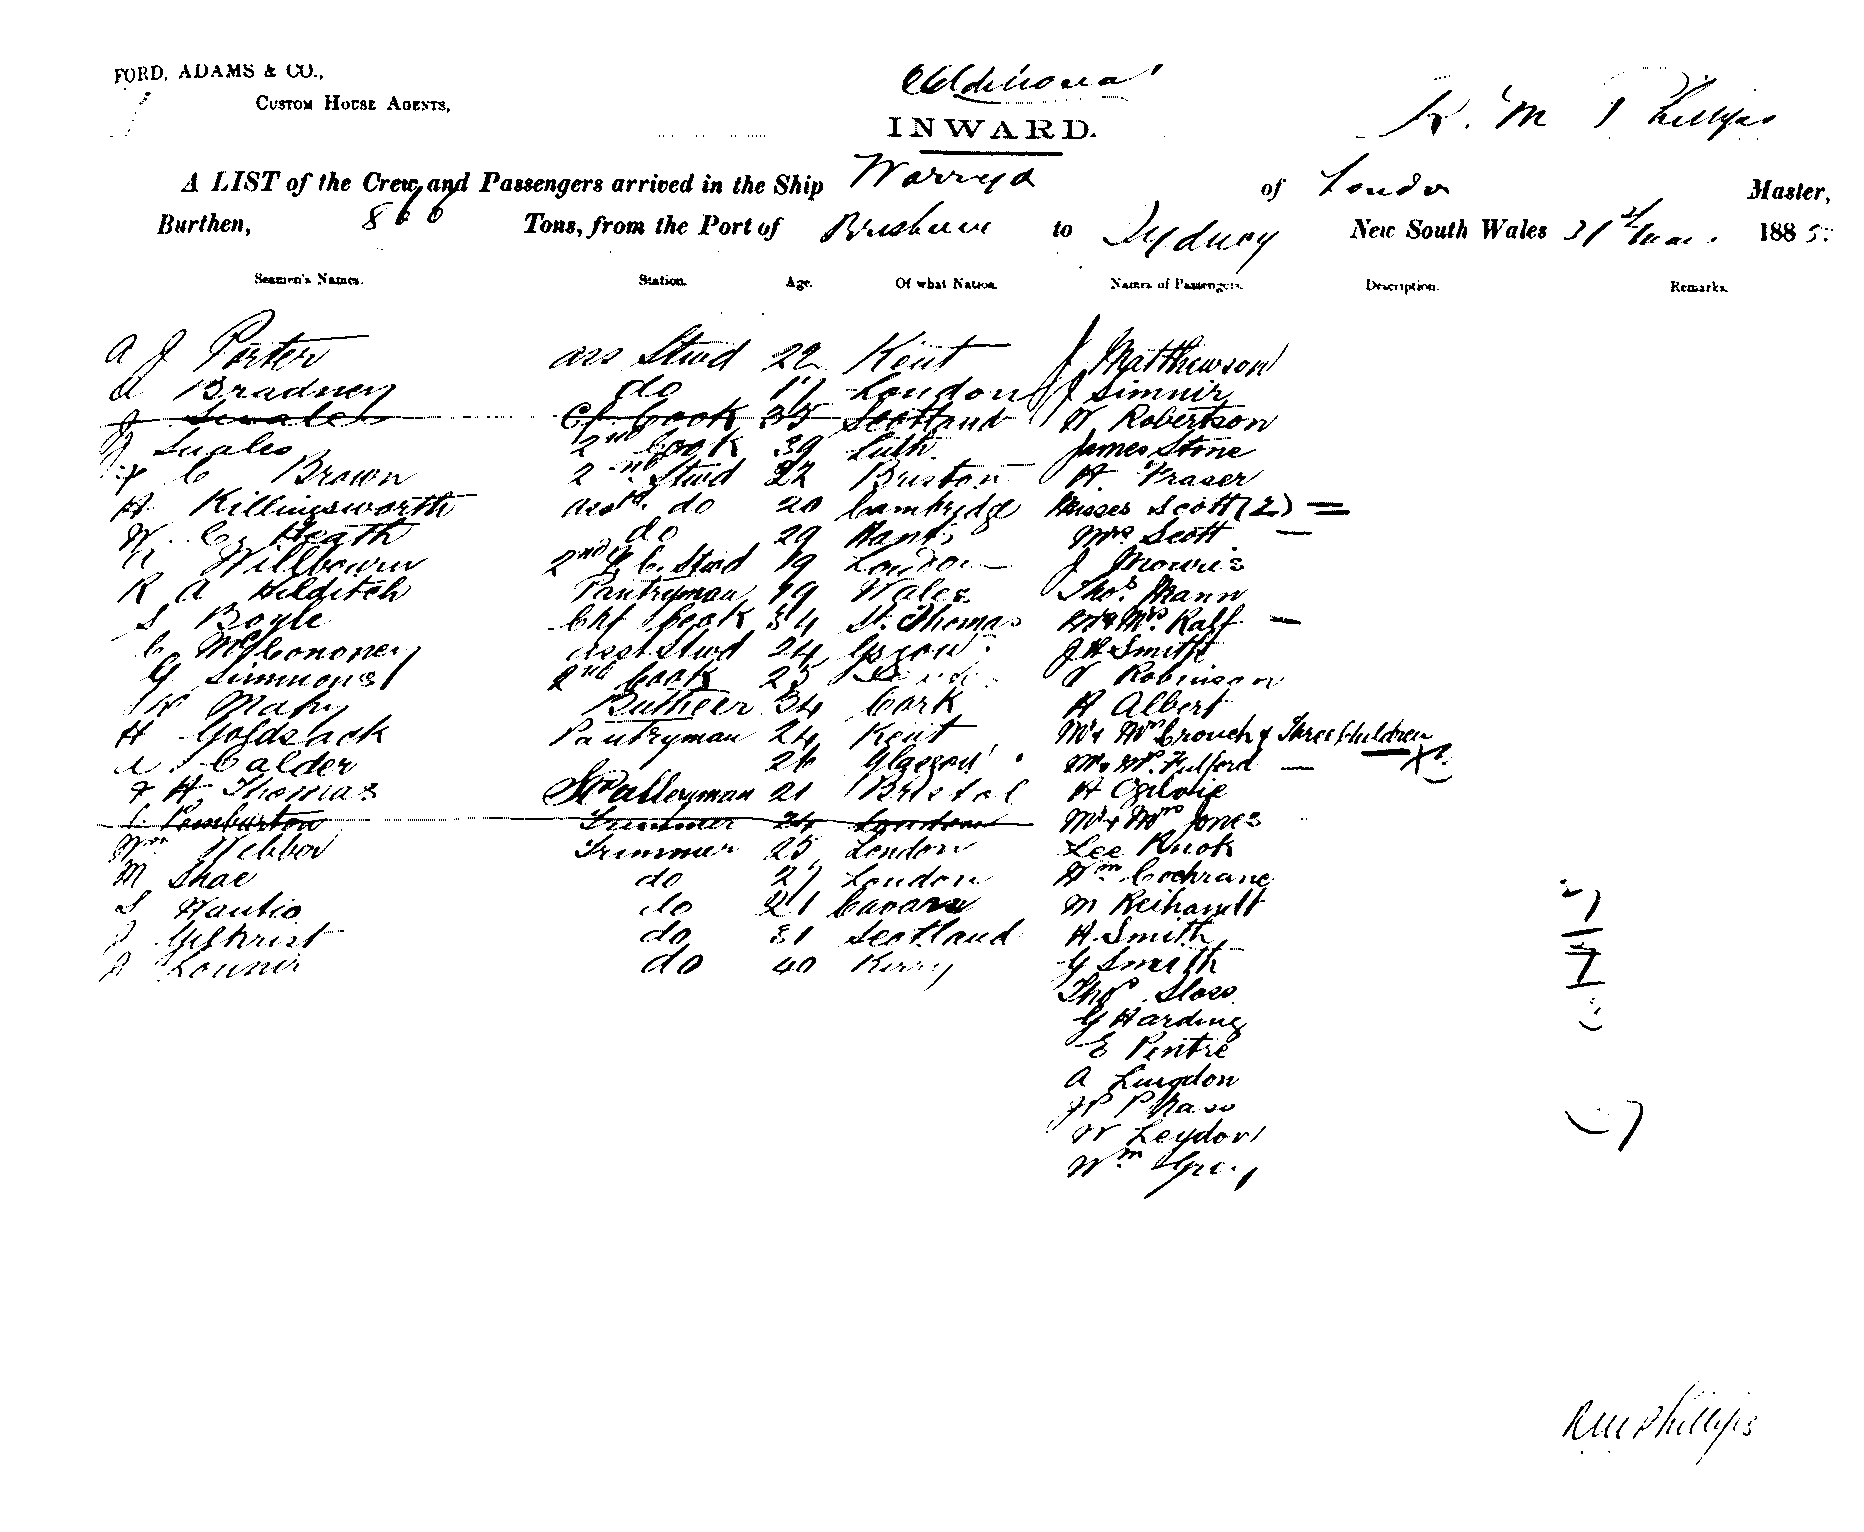 FORD, ADAMS & CO.,
CUSTOM HOUSE AGENTS,
Additional
INWARD.
R. M Phillips
A LIST of the Crew and Passengers arrived in the Ship Warryd of London Master,
Burthen, 866 Tons, from the Port of Brisbane to Sydney New South Wales 31st Mar. 1885
Seamen's Names. Station. Age. Of what Nation. Names of Passengers. Description. Remarks.
A J Porter ass Stwd 22 Kent J Matthewson
A Bradney do 17 London J Simnir
Cf Cook 35 Scotland W Robertson
J Suales 2nd Cook 39 Leith James Stone
C Brown 2nd Stwd 22 Briston H. Fraser
H. Killingsworth asst. do 20 Cambridge Misses Scott (2) =
W. C. Heath do 29 Hants Mrs Scott —
Willbourn 2nd Stwd 19 London J Mowris
R A Hilditch Pantryman 19 Wales Thos. Mann
S Boyle Chf Cook 34 St. Thomas Mr & Mrs. Ralf —
C McConones asst Stwd 24 J H Smith
G Simmons 2nd Cook 25 Robinson
W Mahy Butcher 34 Cork H Albert
H Goldslack Pantryman 24 Kent Mr & Mrs Crouch & Three Children
A Calder 26 Glasgow Mr & Mrs. Fulford —
F H Thomas Sculleryman 21 Bristol H Ogilvie
C. Pemburton Trimmer 24 London Mr & Mrs Jones
Wm Webber Trimmer 25 London Lee Kuok
M Shae do 27 London Wm Cochrane
S Wautio do 21 M Reihandt
J Gilkrist do 31 Scotland H. Smith
do 40 Kerry G Smith
Thos Sloss
G Harding
E Pentre
A Lungdon
W Leydon
Wm Grey
R M Phillips